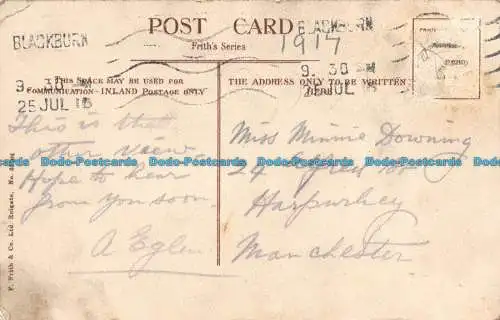 POST CARD
Frith's Series
BLACKBURN
BLACKBURN
1917
9 30 PM
25 JUL 16
THIS SPACE MAY BE USED FOR
COMMUNICATION-INLAND POSTAGE ONLY
THE ADDRESS ONLY TO BE WRITTEN
HERE
This is the
other view
Hope to hear
from you soon.
A Eglin
Miss Minnie Downing
29
Harpurhey
Manchester
F. Frith & Co. Ltd. Reigate. No.
Dodo-Postcards Dodo-Postcards Dodo-Postcards Dodo-Postcards